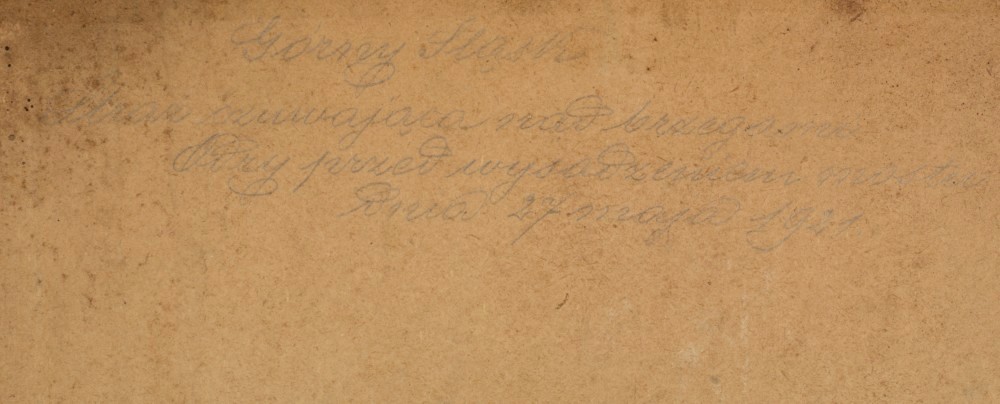 Gorny Śląsk
Straż czuwająca nad brzegami
Odry przed wysadzeniem mostu
Dnia 27 maja 1921